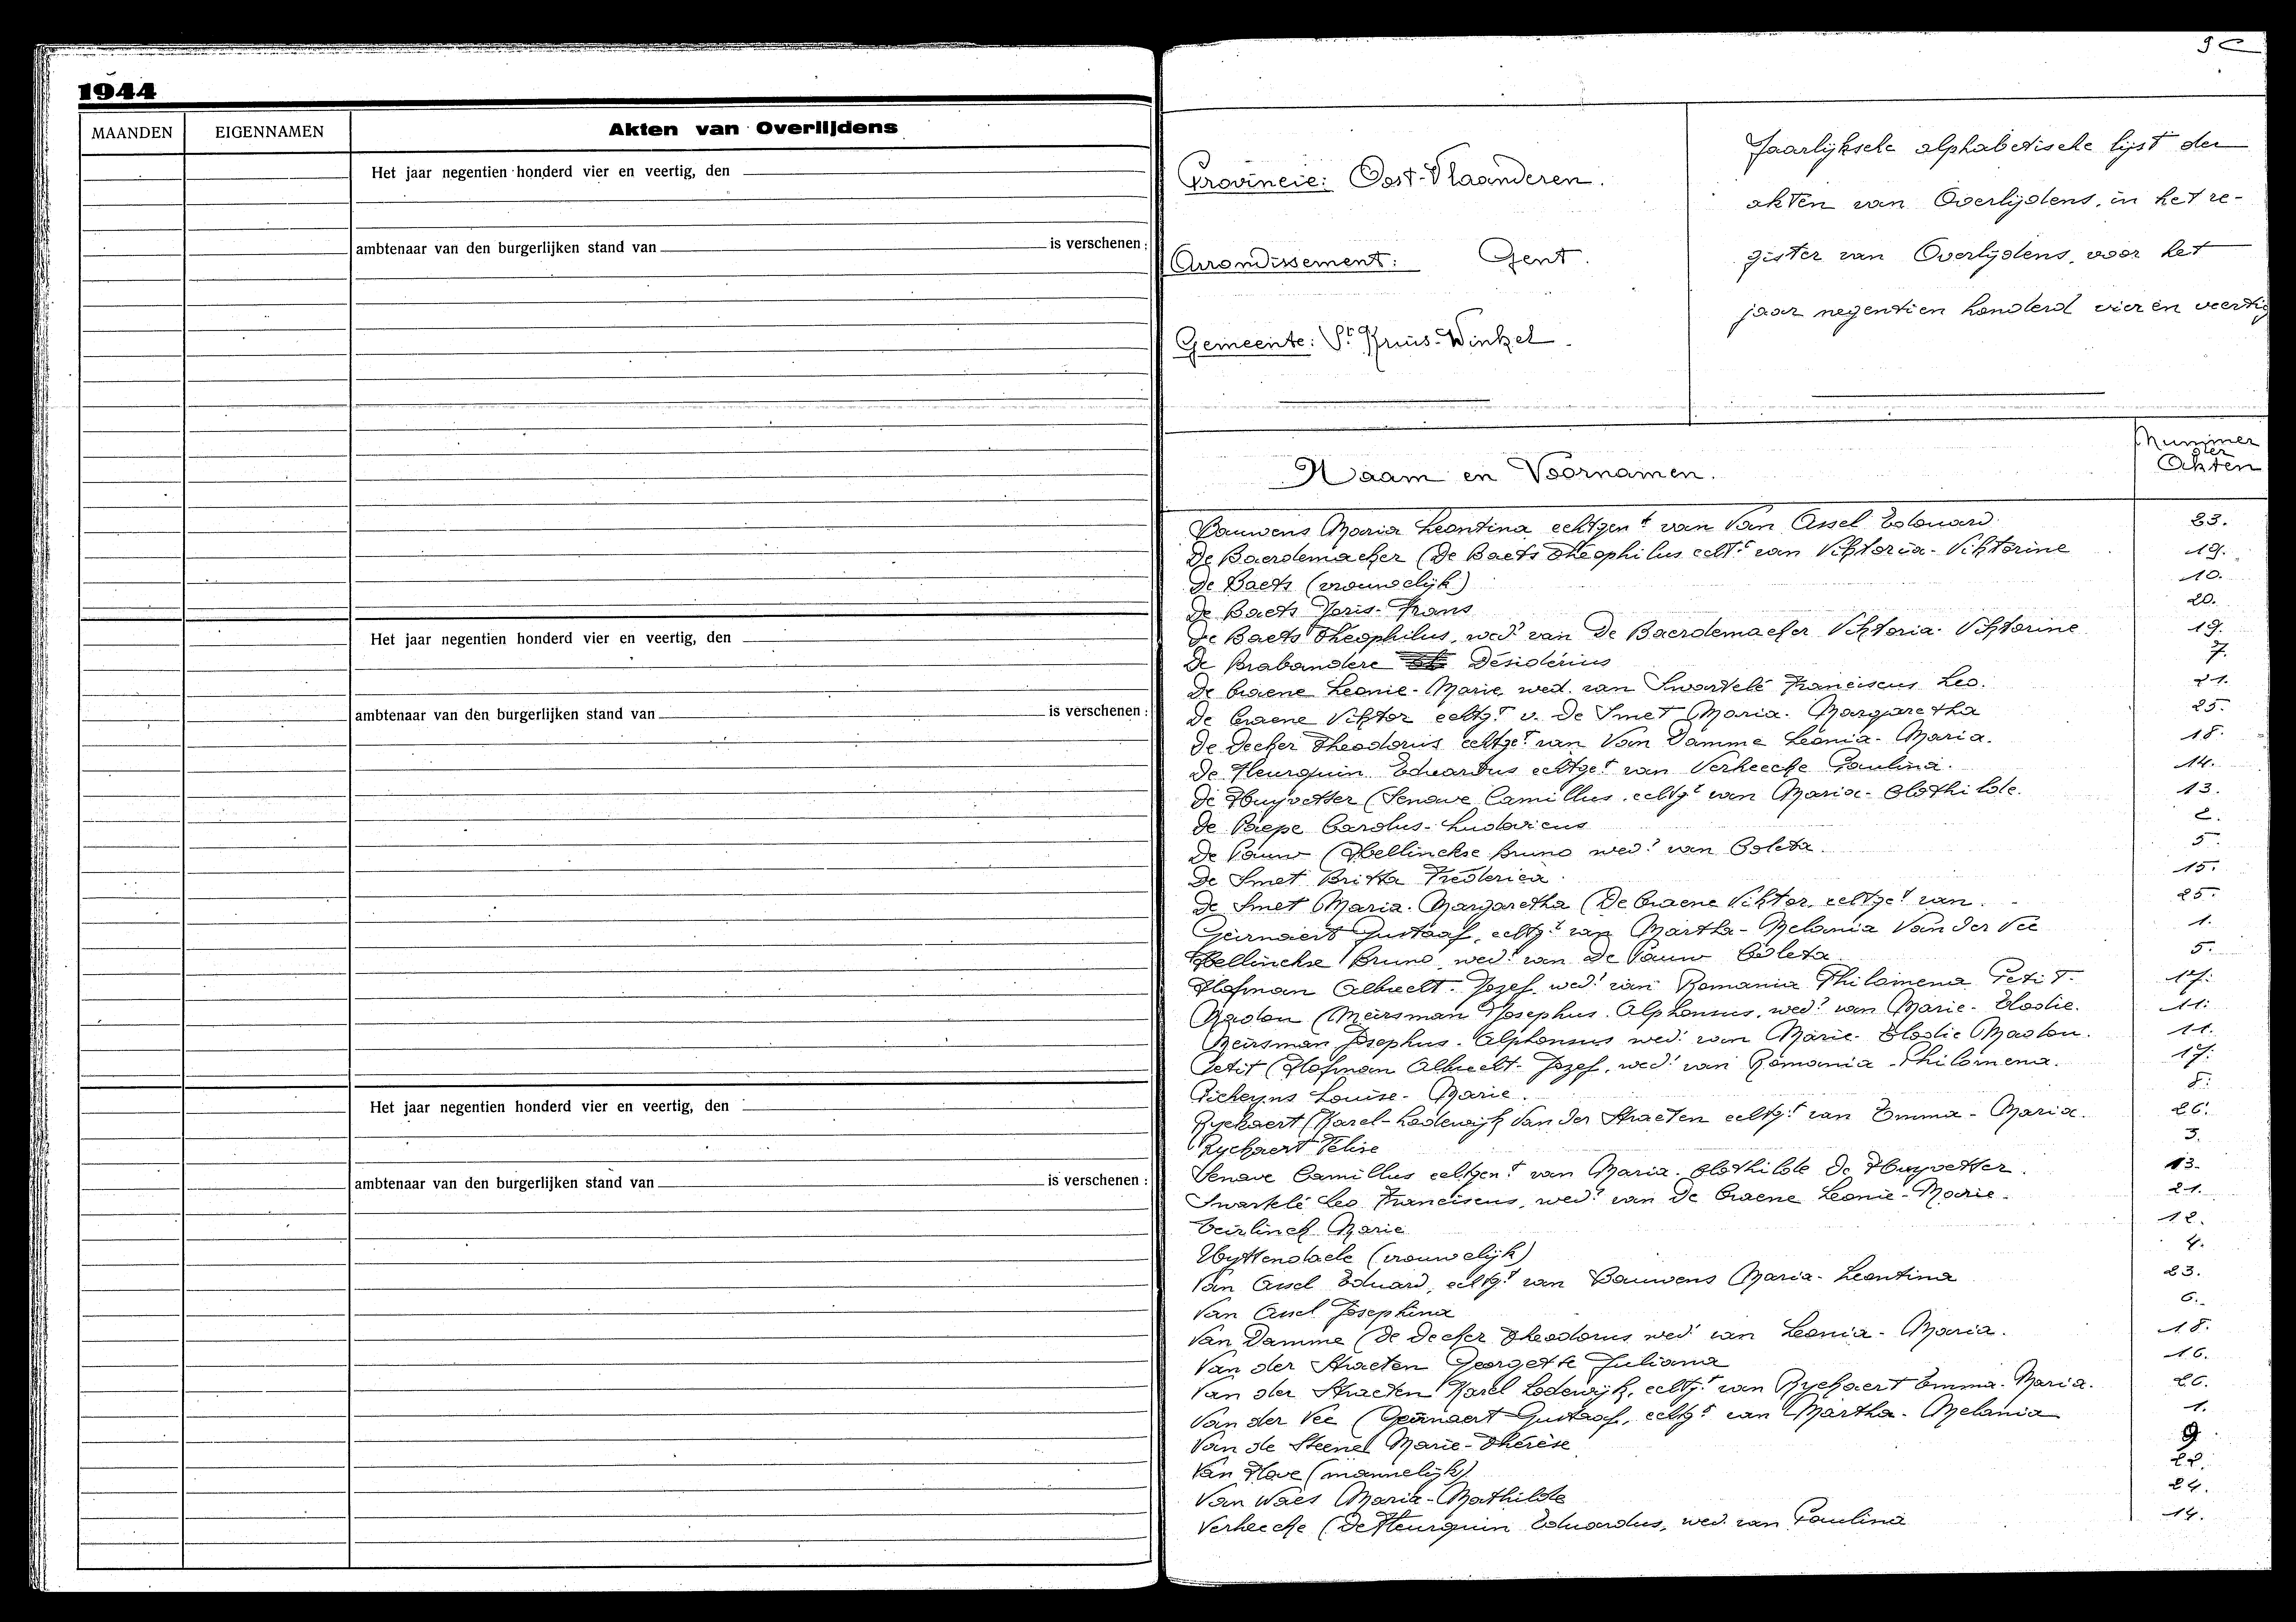 1944
MAANDEN EIGENNAMEN Akten van Overlijdens
Het jaar negentien honderd vier en veertig, den
ambtenaar van den burgerlijken stand van is verschenen :
Het jaar negentien honderd vier en veertig, den
ambtenaar van den burgerlijken stand van is verschenen :
Het jaar negentien honderd vier en veertig, den
ambtenaar van den burgerlijken stand van is verschenen :
Provincie: Oost-Vlaanderen.
Arrondissement: Gent.
Gemeente: St Kruis-Winkel.
Jaarlijksche alphabetische lijst der
akten van Overlijdens, in het re-
gister van Overlijdens, voor het
jaar negentien honderd vier en veertig
Naam en Voornamen. Nummer der Akten
Bauwens Maria Leontina echtgent van Van Assel Edouard 23.
De Baerdemaeker (De Baets Theophilus echt van Viktoria-Viktorine 19.
De Baets (vrouwelijk) 10.
De Baets Joris-Frans 20.
De Baets Theophilus, wedr van De Baerdemaeker Viktoria-Viktorine 19.
De Brabandere Désidérius 7.
De Craene Leonie-Marie, wed. van Swartelé Franciscus Leo. 21.
De Craene Viktor echtgt v. De Smet Maria-Margaretha 25.
De Decker Theodorus echtget van Van Damme Leonia-Maria. 18.
De Fleurquin Eduardus echtget van Verheecke Paulina. 14.
De Huyvetter (Senave Camillus, echtgt van Maria-Clothilde. 13.
De Paepe Carolus-Ludovicus 2.
De Pauw (Hellinckse Bruno wedr van Coleta. 5.
De Smet Britta Frederica. 15.
De Smet Maria-Margaretha (De Craene Viktor, echtget van. 25.
Geirnaert Gustaaf, echtgt van Martha-Melania Van der Vee 1.
Hellinckse Bruno, wedr van De Pauw Coleta 5.
Hofman Albrecht-Jozef, wedr van Romania Philomena Petit. 17.
Madou (Meirsman Josephus-Alphonsus, wedr van Marie-Elodie. 11.
Meirsman Josephus-Alphonsus wedr van Marie-Elodie Madou. 11.
Petit (Hofman Albrecht-Jozef, wedr van Romania-Philomena. 17.
Louise-Marie. 8.
Ryckaert (Karel-Lodewijk Van der Straeten echtgt van Emma-Maria. 26.
Ryckaert Felix 3.
Senave Camillus echtgent van Maria-Clothilde De Huyvetter. 13.
Swartelé Leo Franciscus, wedr van De Craene Leonie-Marie. 21.
Teirlinck Marie 12.
Uyttendaele (vrouwelijk) 4.
Van Assel Eduard, echtgt van Bauwens Maria-Leontina 23.
Van Assel Josephina 6.
Van Damme (De Decker Theodorus wedr van Leonia-Maria. 18.
Van der Straeten Georgette Juliana 16.
Van der Straeten Karel Lodewijk, echtgt van Ryckaert Emma-Maria. 26.
Van der Vee (Geirnaert Gustaaf, echtgt van Martha-Melania 1.
Van de Steene Marie-Thérèse 9
Van Hove (mannelijk) 22.
Van Waes Maria-Mathilde 24.
Verheecke (De Fleurquin Eduardus, wed. van Paulina 14.